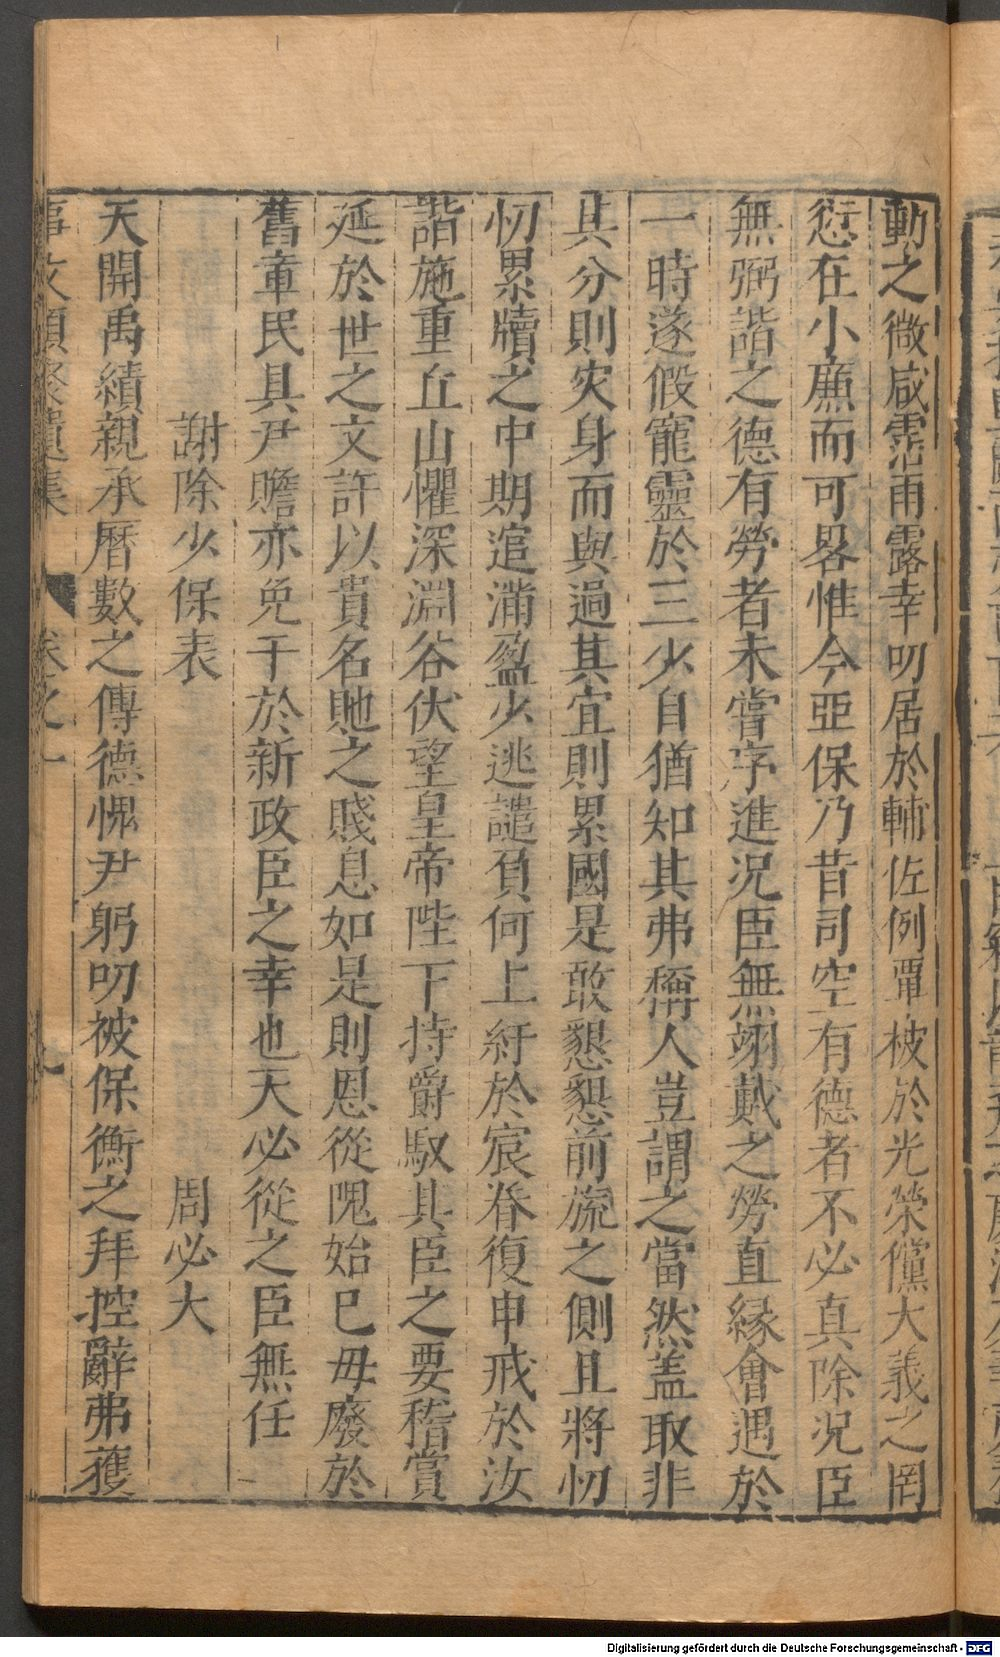 動之微咸霑雨露幸叨居於輔佐例覃被於光榮儻大義之罔
愆在小㢘而可畧惟今亞保乃昔司空有德者不必真除况臣
無弼諧之德有勞者未嘗序進况臣無翊戴之勞直縁會遇於
一時遂假寵靈於三少自猶知其弗稱人豈謂之當然盖取非
其分則灾身而與過其宜則累國是敢懇懇前旒之側且將忉
忉累牘之中期逭滿盈少逃譴負何上紆於宸眷復申戒於汝
諧施重丘山懼深淵谷伏望皇帝陛下持爵馭其臣之要稽賞
延於世之文許以貴名貤之賤息如是則恩從隗始已毋廢於
舊章民具尹瞻亦免干於新政臣之幸也天必從之臣無任
謝除少保表 周必大
天開禹績親承曆數之傳德愧尹躬叨被保衡之拜控辭弗獲
事文類聚遺集 卷之一
Digitalisierung gefördert durch die Deutsche Forschungsgemeinschaft - DFG